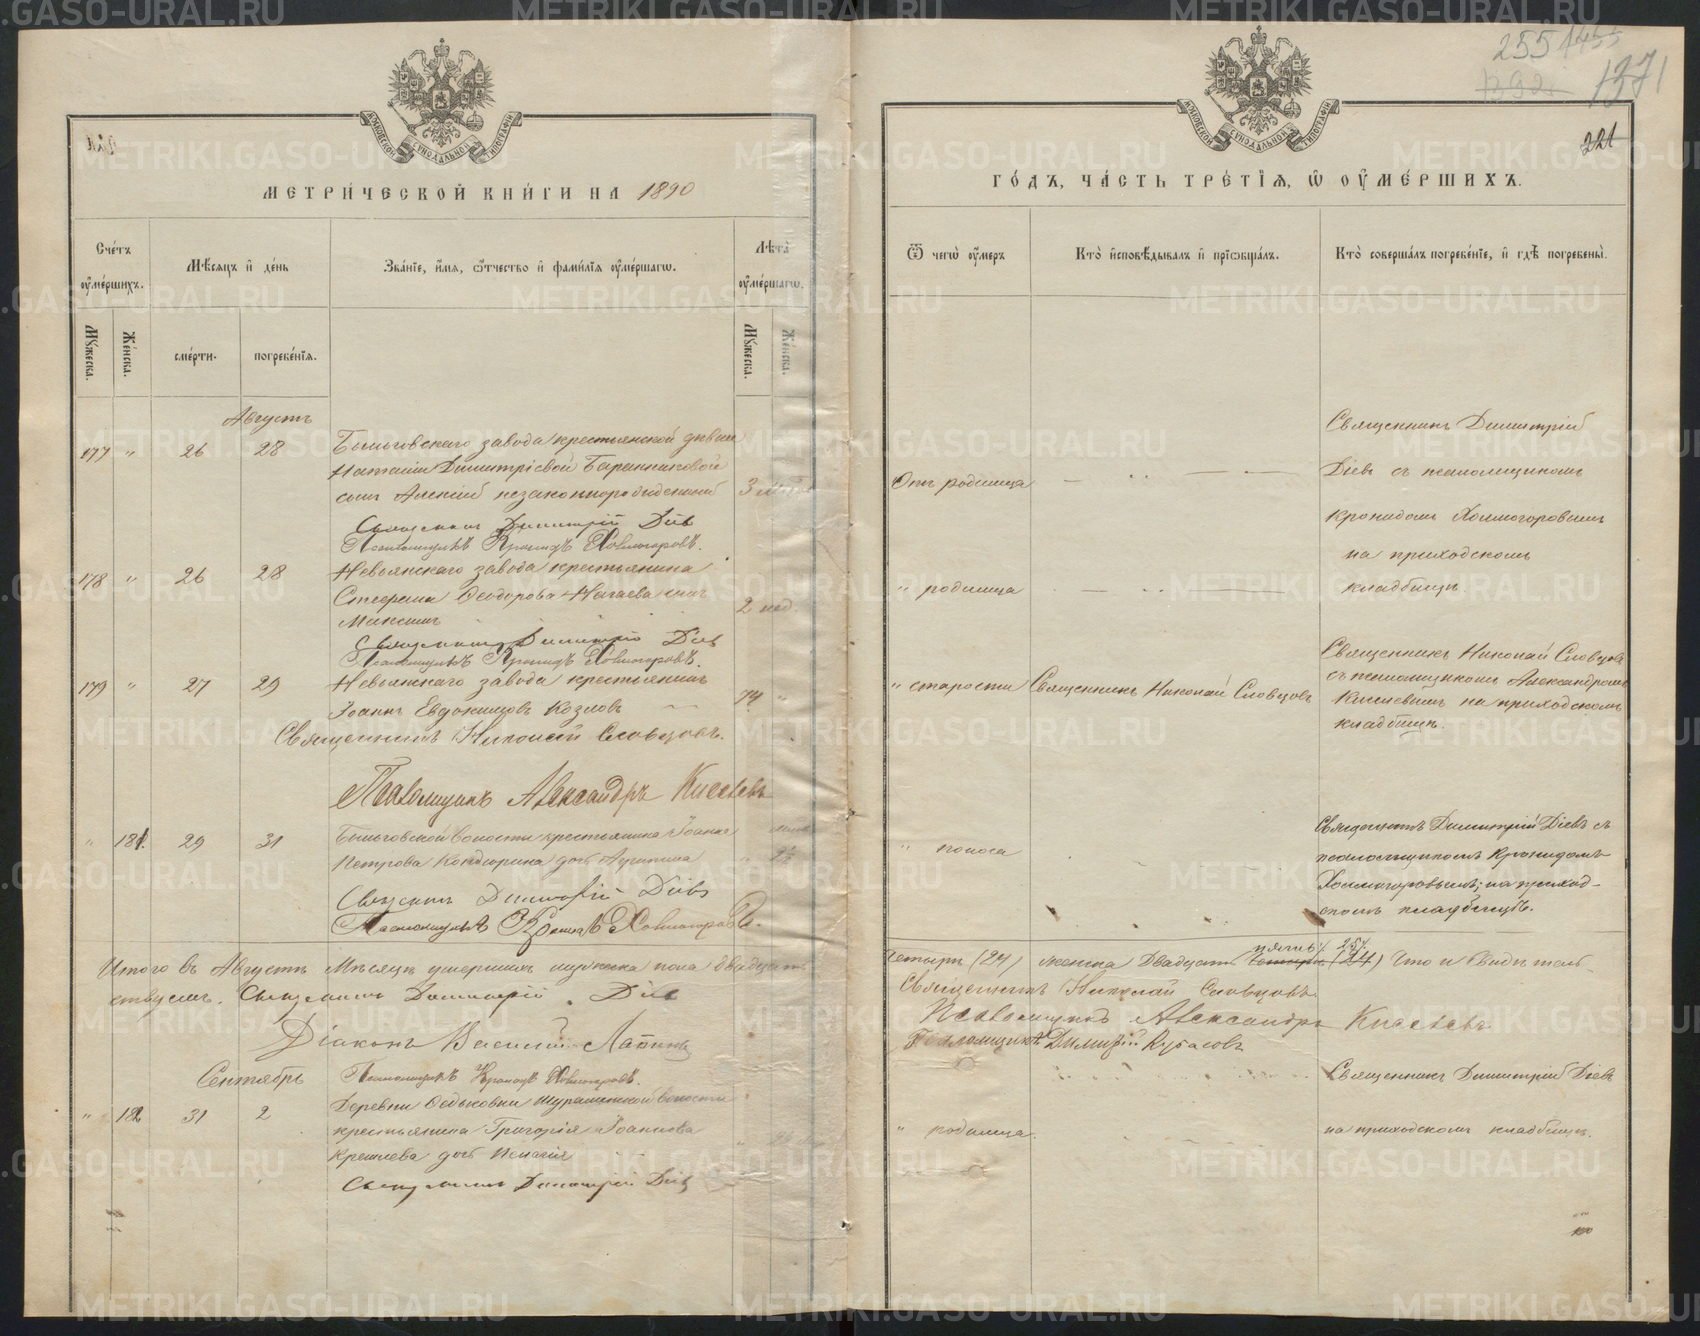 МЕТРИ́ЧЕСКОЙ КНИ́ГИ НА 1890
Сче́тъ ᲂу҆ме́ршихъ.
Мѣ́сѧцъ и҆ де́нь
Зва́нїе, и҆́мѧ, ѻ҆́тчество и҆ фами́лїѧ ᲂу҆ме́ршагѡ.
Лѣ́та ᲂу҆ме́ршагѡ.
Мꙋ́жеска.
Же́нска.
сме́рти.
погребе́нїѧ.
Мꙋ́жеска.
Же́нска.
Августъ
177 " 26 28 Быньговскаго завода крестьянской дѣвицы
Наталіи Димитріевой Баранниковой
сынъ Алексій незаконнорожденный 3
Священникъ Димитрій Діевъ
Псаломщикъ Кронидъ Холмогоровъ.
178 " 26 28 Невьянскаго завода крестьянина
Стефана Феодорова Нагаева сынъ 2 нед.
Максимъ
Священникъ Димитрій Діевъ
Псаломщикъ Кронидъ Холмогоровъ.
179 " 27 29 Невьянскаго завода крестьянинъ
Іоаннъ Евдокимовъ Козловъ 74 "
Священникъ Николай Словцовъ.
Псаломщикъ Александръ Киселевъ
" 181. 29 31 Быньговской волости крестьянина Іоанна
Петрова Кондюрина дочь
Священникъ Димитрій Діевъ
Псаломщикъ Кронидъ Холмогоровъ.
Итого въ Августѣ Мѣсяцѣ умершихъ мужеска пола двадцать
ствуемъ. Священникъ Димитрій Діевъ
Діаконъ Василій
Сентябрь Псаломщикъ Кронидъ Холмогоровъ.
" 182 31 2 Деревни Федьковки Шуралинской волости
крестьянина Григорія Іоаннова
дочь Пелагія
Священникъ Димитрій Діевъ
255
1371
221
ГО́ДЪ, ЧА́СТЬ ТРЕ́ТЇѦ, Ѡ҆ ОУ҆МЕ́РШИХЪ.
Ѿ чегѡ̀ ᲂу҆́меръ
Кто̀ и҆сповѣ́дывалъ и҆ прїѡбща́лъ.
Кто̀ соверша́лъ погребе́нїе, и҆ гдѣ̀ погребены̀.
Отъ родимца
Священникъ Димитрій
Діевъ съ псаломщикомъ
Кронидомъ Холмогоровымъ
на приходскомъ
кладбищѣ.
" родимца
" старости Священникъ Николай Словцовъ
Священникъ Николай Словцовъ
съ псаломщикомъ Александромъ
Киселевымъ на приходскомъ
кладбищѣ.
" поноса
Священникъ Димитрій Діевъ съ
псаломщикомъ Кронидомъ
Холмогоровымъ; на приход-
скомъ кладбищѣ.
четыре (24) женска двадцать пять 25) четыре (24) Что и свидѣтель-
Священникъ Николай Словцовъ.
Псаломщикъ Александръ Киселевъ
Псаломщикъ Димитрій Кубасовъ
Священникъ Димитрій Діевъ
" родимца.
на приходскомъ кладбищѣ.